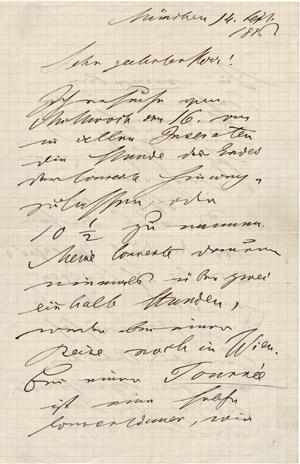 München 14. Sept.
188
Sehr geehrter Herr!
Ich ersuche vom
Mittwoch den 16. an
in allen Inseraten
die Stunde des Endes
der Concerte hinweg-
zulassen, oder
10 ½ zu nennen.
Meine Concerte dauern
niemals über zwei
ein halb Stunden,
weder bei einer
Reise noch in Wien.
Bei einer Tournée
ist eine solche
Concertdauer, wie